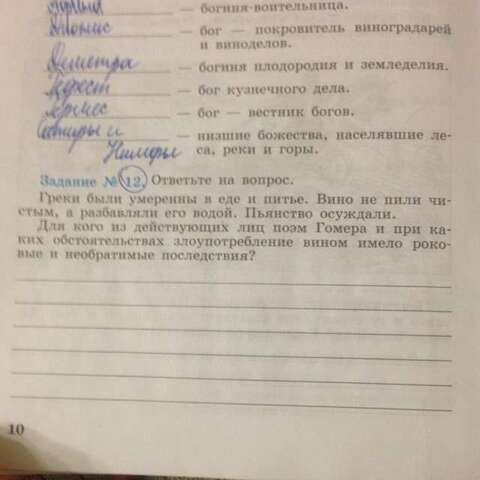 — богиня-воительница.
— бог — покровитель виноградарей
и виноделов.
Деметра — богиня плодородия и земледелия.
Гефест — бог кузнечного дела.
Гермес — бог — вестник богов.
Сатиры и — низшие божества, населявшие ле-
Нимфы са, реки и горы.
Задание № 12. Ответьте на вопрос.
Греки были умеренны в еде и питье. Вино не пили чи-
стым, а разбавляли его водой. Пьянство осуждали.
Для кого из действующих лиц поэм Гомера и при ка-
ких обстоятельствах злоупотребление вином имело роко-
вые и необратимые последствия?
10